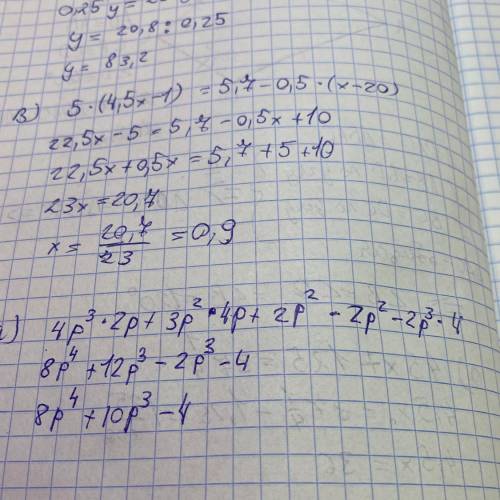 y = 20,8 : 0,25
y = 83,2
в) 5·(4,5x-1) = 5,7-0,5·(x-20)
22,5x-5=5,7-0,5x+10
22,5x+0,5x=5,7+5+10
23x=20,7
x= 20,7/23 =0,9
4p³·2p+3p²·4p+2p²-2p²-2p³·4
8p⁴+12p³-2p³-4
8p⁴+10p³-4